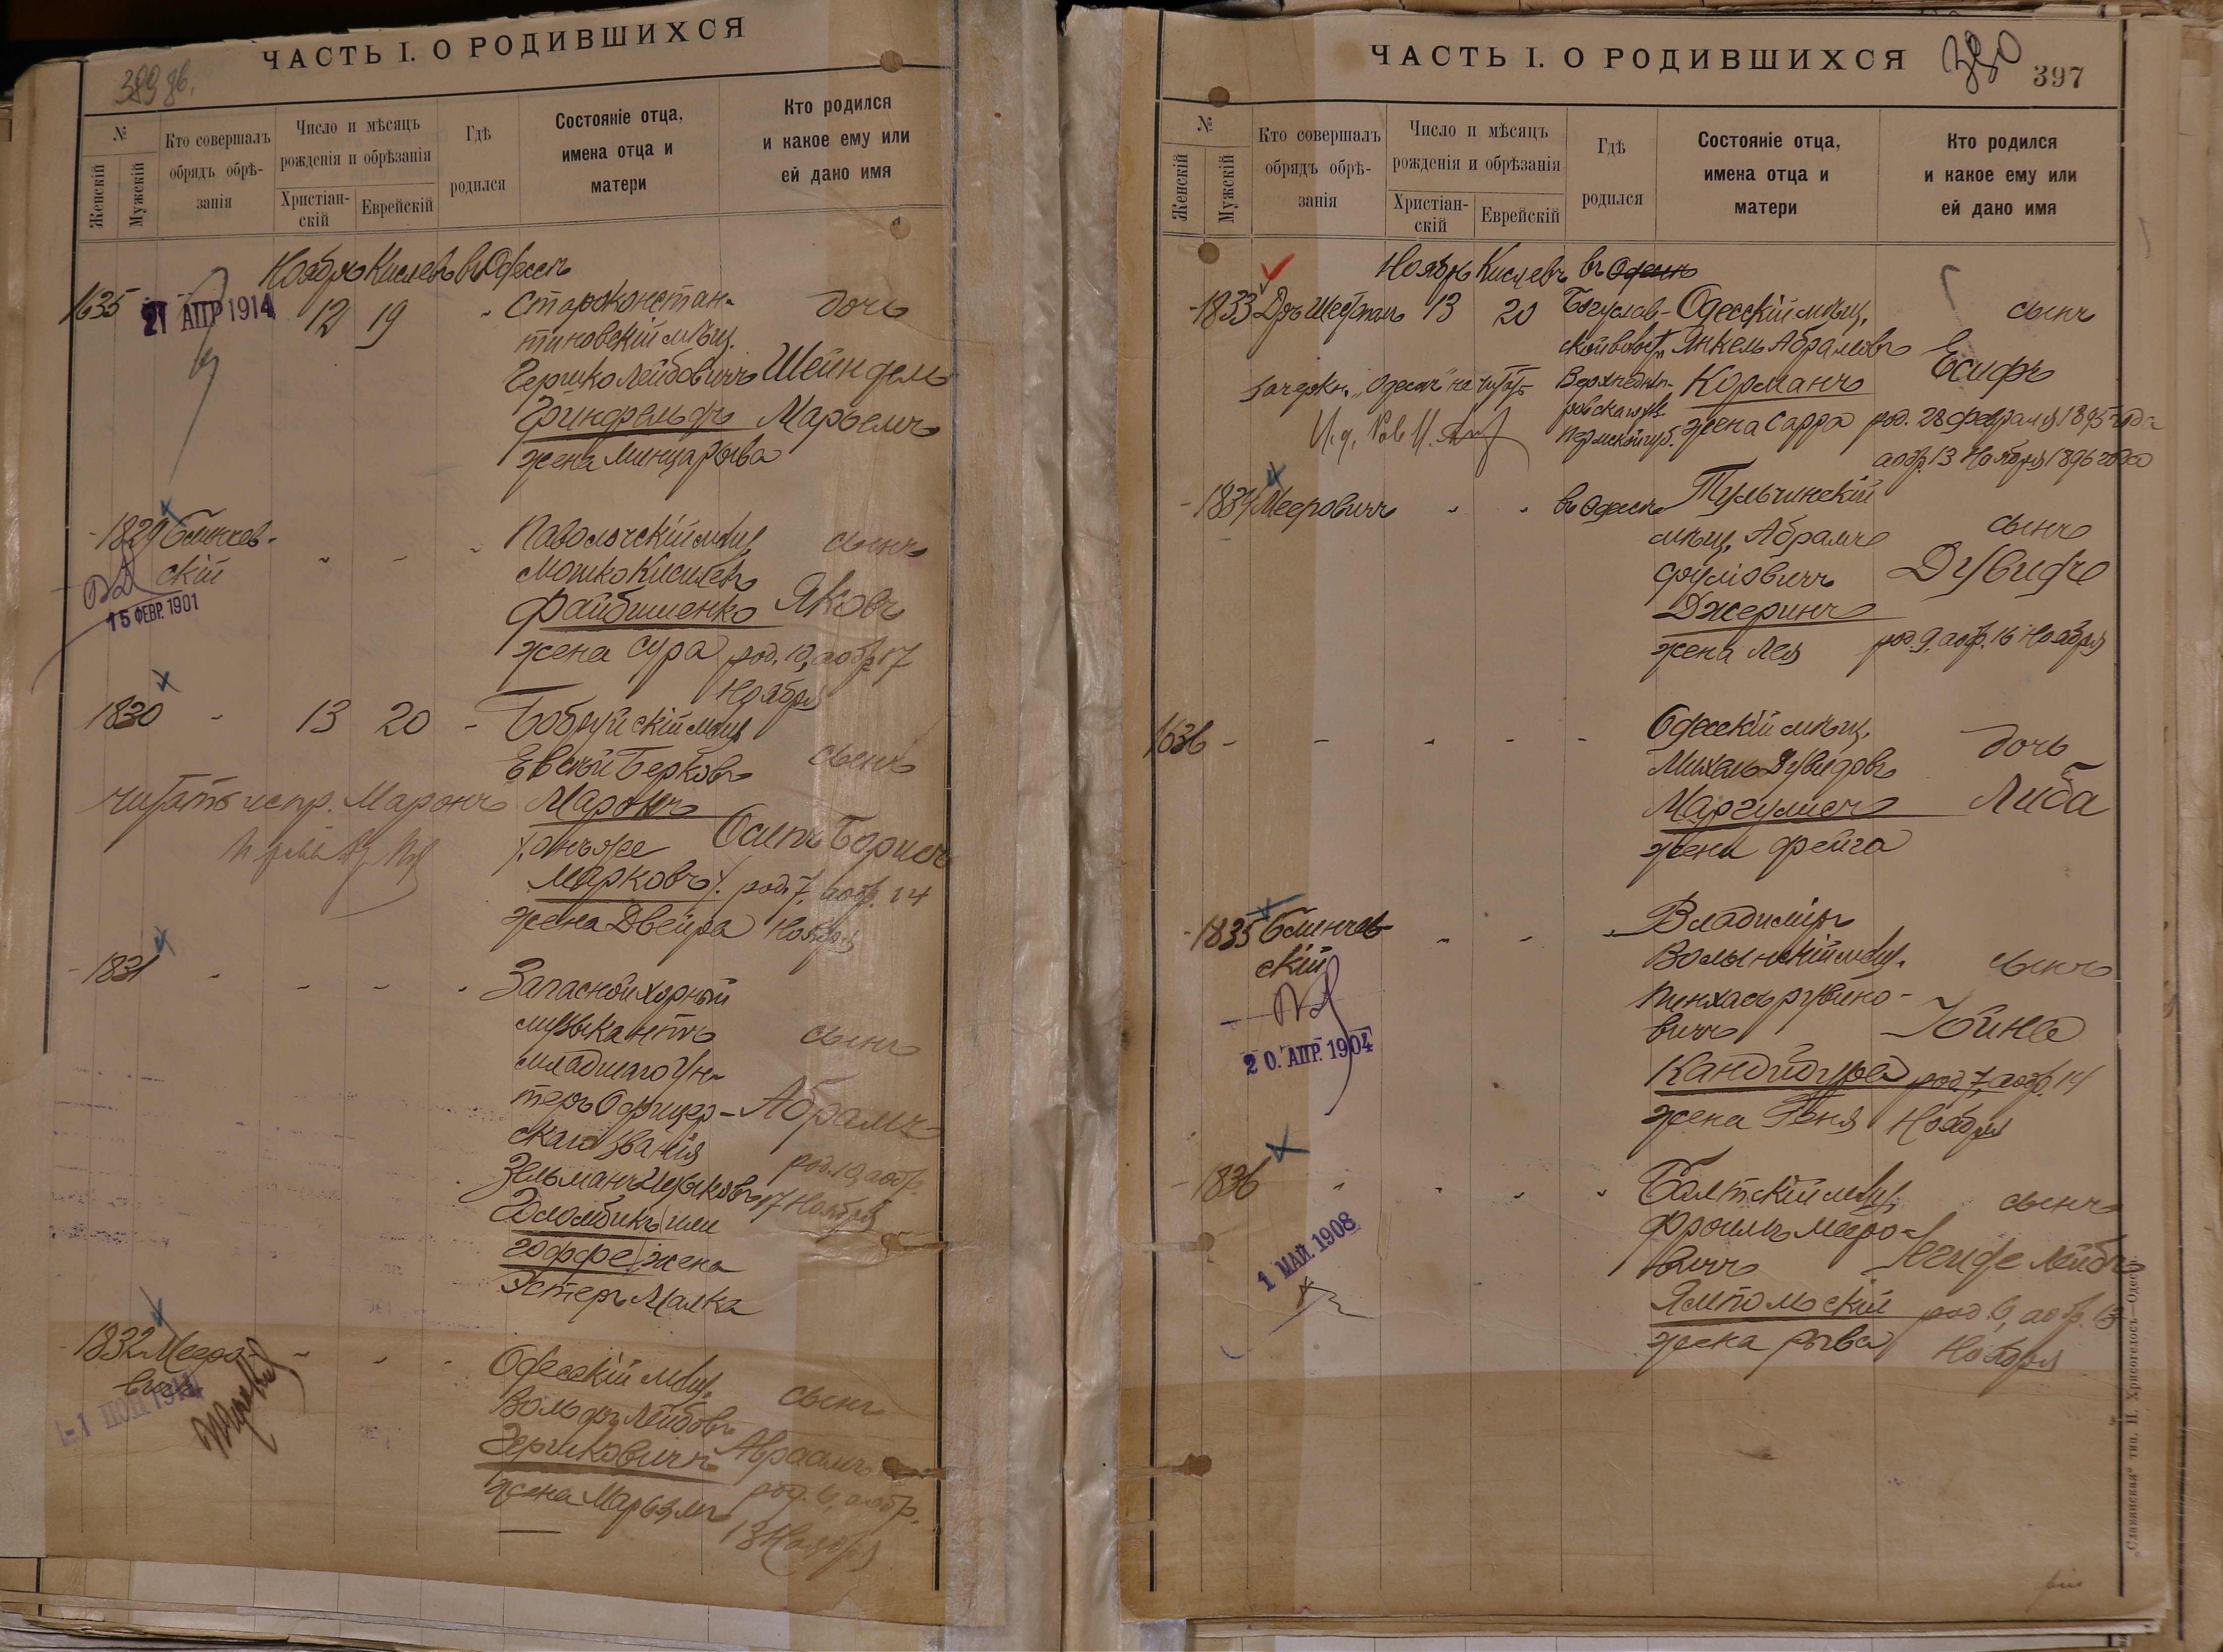 ЧАСТЬ I. О РОДИВШИХСЯ
№
Женскій
Мужскій
Кто совершалъ
обрядъ обрѣ-
занія
Число и мѣсяцъ
рожденія и обрѣзанія
Христіан-
скій
Еврейскій
Гдѣ
родился
Состояніе отца,
имена отца и
матери
Кто родился
и какое ему или
ей дано имя
Ноябрь Кислевъ въ Одессѣ
1635
21 АПР 1914
12 19
Староконстан-
тиновскій мѣщ.
Гершко Лейбовичъ
Гринфельдъ
жена Минца Рыва
дочь
Шейндель
Марьемъ
1829 Блинчев-
скій
15 ФЕВР. 1901
Паволочскій мѣщ.
Мошко Кисилевъ
Файбишенко
жена Сура
сынъ
Яковъ
род. 10, а обр. 17
Ноября
1830 13 20
Бобруйскій мѣщ.
Евсѣй Берковъ
Маронъ
онъ же
Марковъ
жена Двейра
сынъ
Осипъ Борисъ
род. 7, а обр. 14
Ноября
читать испр. Маронъ
1831
Запасной хорный
музыкантъ
младшаго Ун-
теръ Офицер-
скаго званія
Зельманъ Ицковъ
Голомбикъ или
Гоффе жена
Эстеръ Малка
сынъ
Абрамъ
род. 10, а обр.
17 Ноября
1832 Мееро-
вичъ
Одесскій мѣщ.
Вольфъ Лейбовъ
Гершковичъ
жена Марьямъ
сынъ
Авраамъ
род. 6, а обр.
13 Ноября
ЧАСТЬ I. О РОДИВШИХСЯ
397
№
Женскій
Мужскій
Кто совершалъ
обрядъ обрѣ-
занія
Число и мѣсяцъ
рожденія и обрѣзанія
Христіан-
скій
Еврейскій
Гдѣ
родился
Состояніе отца,
имена отца и
матери
Кто родился
и какое ему или
ей дано имя
Ноябрь Кислевъ въ Одессѣ
1833 Дръ 13 20
Богуслав-
Верхнеднѣп-
Одесскій мѣщ.
Янкель Абрамовъ
Корманъ
жена Сарра
сынъ
Есифъ
род. 28 февраля 1895 года
а обр. 13 Ноября 1896 года
зачеркн. „Одессѣ" не читать
1834 Мееровичъ въ Одессѣ
Тульчинскій
мѣщ. Абрамъ
Сруліовичъ
Джеринъ
жена Лея
сынъ
Дувидъ
род. 9, а обр. 16 Ноября
1636
Одесскій мѣщ.
Михель Дувидовъ
Маргулисъ
жена Фейга
дочь
Либа
1835 Блинчев-
скій
20. АПР. 1904
Владиміръ
Волынскій мѣщ.
Пинхасъ Рувино-
вичъ
Кандидура
жена Геня
сынъ
Іойна
род. 7, а обр. 14
Ноября
1836
1 МАЙ. 1908
Балтскій мѣщ.
Фроимъ Мееро-
вичъ
Ямпольскій
жена Рыва
сынъ
Лейбъ
род. 6, а обр. 13
Ноября
„Славянская" тип. Н. Хрисогелосъ—Одесса.